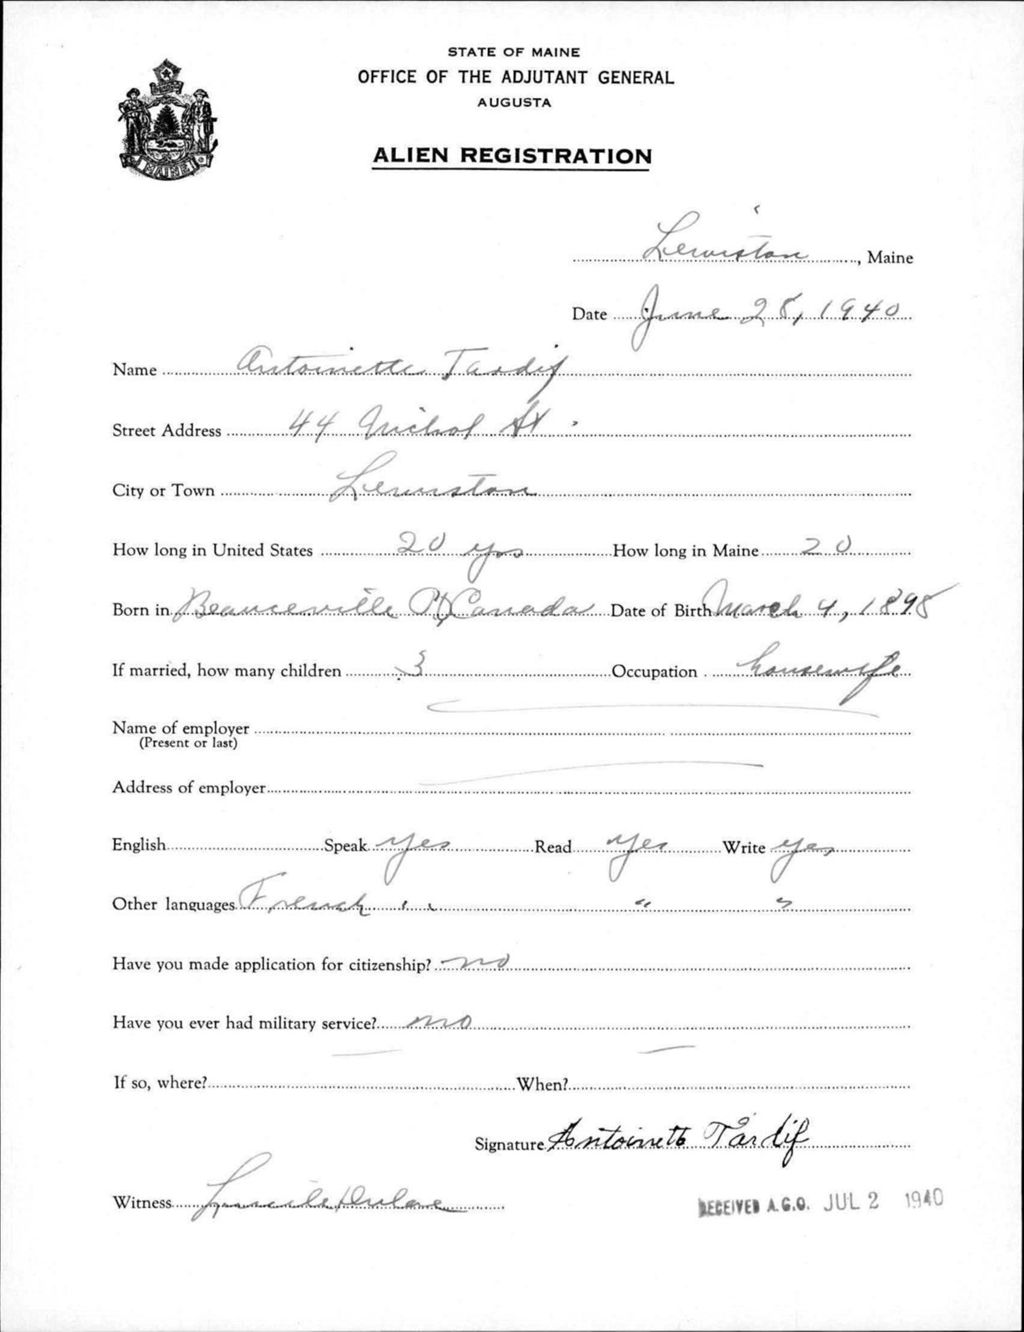 STATE OF MAINE
OFFICE OF THE ADJUTANT GENERAL
AUGUSTA
ALIEN REGISTRATION
MAINE
Lewiston, Maine
Date June 28, 1940
Name Antoinette Tardif
Street Address 44 Nichol St.
City or Town Lewiston
How long in United States 20 yrs How long in Maine 20
Born in Beauceville PQ Canada Date of Birth March 4, 1898
If married, how many children 3 Occupation housewife
Name of employer
(Present or last)
Address of employer
English Speak yes Read yes Write yes
Other languages French " " "
Have you made application for citizenship? no
Have you ever had military service? no
If so, where? When?
Signature Antoinette Tardif
Witness Lucille
RECEIVED A.G.O. JUL 2 1940